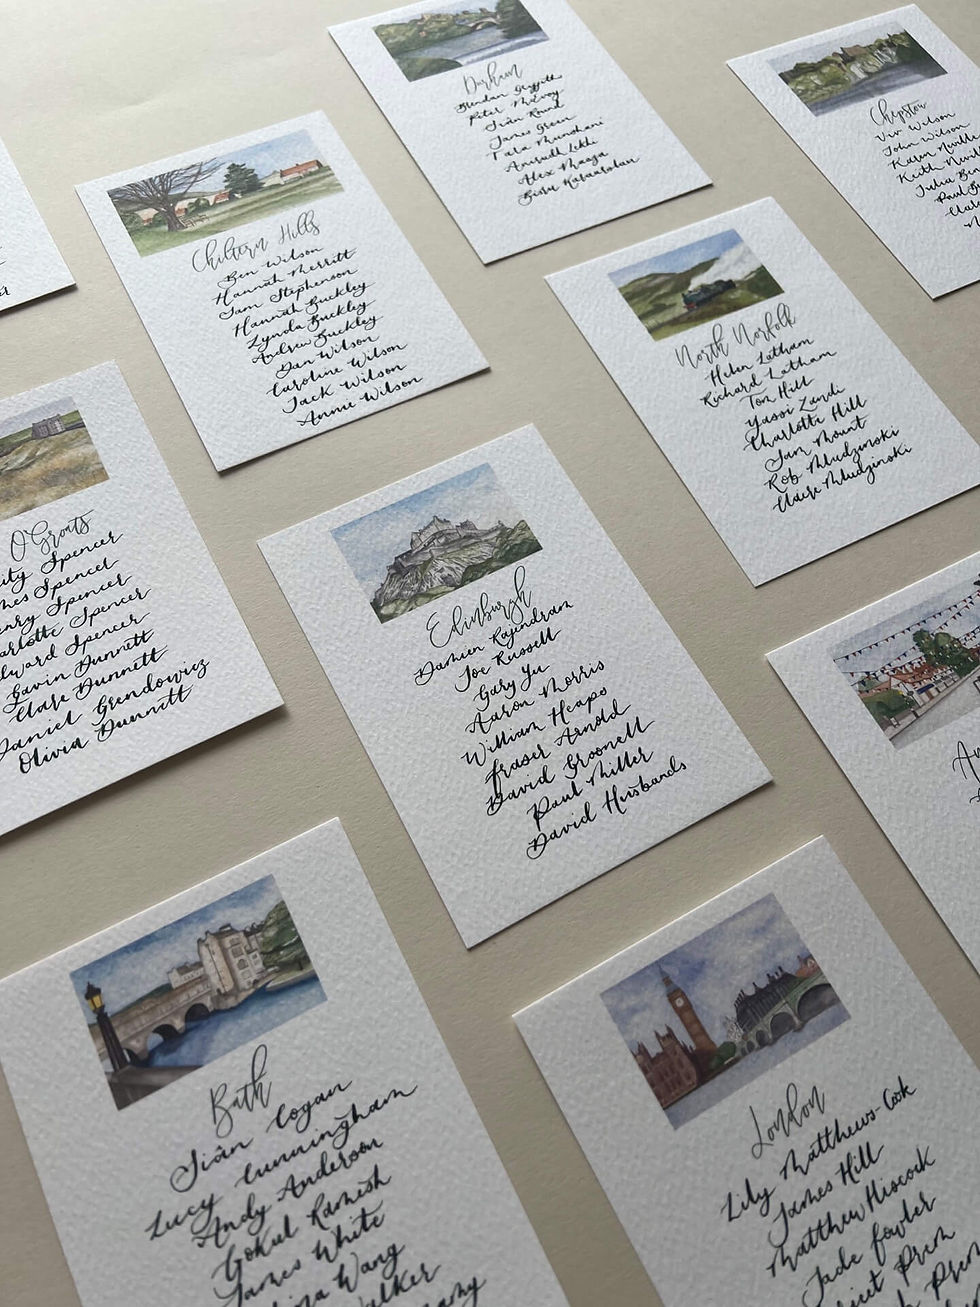 Durham
Brendan Griffith
Peter McEvoy
Siân Round
James Green
Tara Munshani
Anirudh
Alex
Chepstow
Viv Wilson
John Wilson
Karen
Keith
Julia
Paul
Chiltern Hills
Ben Wilson
Hannah Merritt
Sam Stephenson
Hannah Buckley
Lynda Buckley
Andrew Buckley
Dan Wilson
Caroline Wilson
Jack Wilson
Annie Wilson
North Norfolk
Helen Latham
Richard Latham
Tom Hill
Yassi Zandi
Charlotte Hill
Sam Mount
Rob Mludzinski
Claire Mludzinski
O'Groats
Spencer
Spencer
Spencer
Spencer
Spencer
Gavin Dunnett
Clare Dunnett
Daniel Grendowicz
Olivia Dunnett
Edinburgh
Damien Rajendram
Joe Russell
Gary Yu
Aaron Morris
William Heaps
Fraser Arnold
David Groonell
Paul Miller
David Husbands
Bath
Siân Cogan
Lucy Cunningham
Andy Anderson
Gokul Ramesh
James White
Wang
London
Lily Matthews-Cook
James Hill
Matthew Hiscock
Jade Fowler
Prem